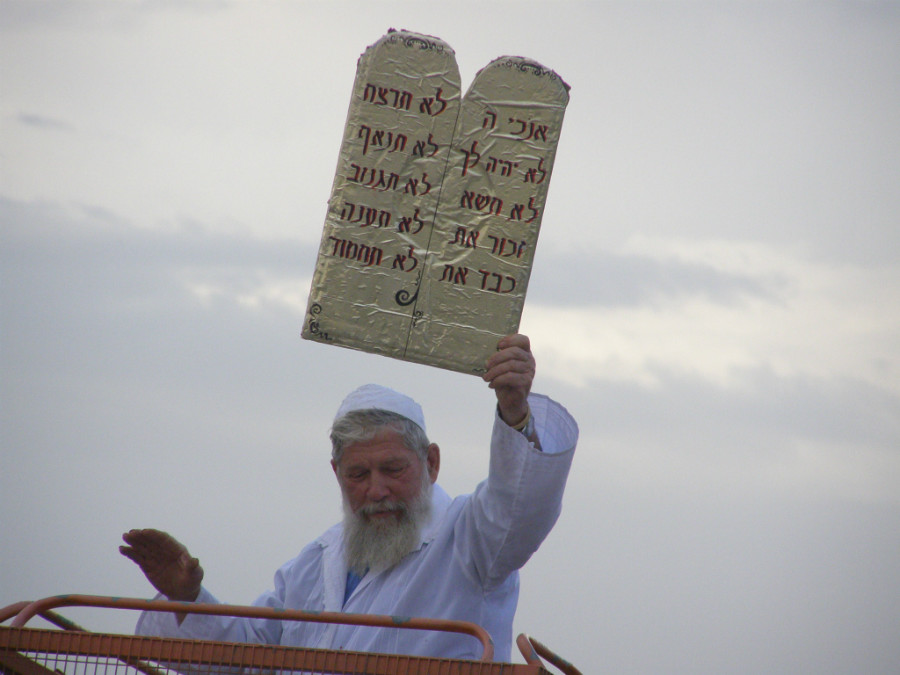 אנכי ה
לא יהיה לך
לא תשא
זכור את
כבד את
לא תרצח
לא תנאף
לא תגנוב
לא תענה
לא תחמוד